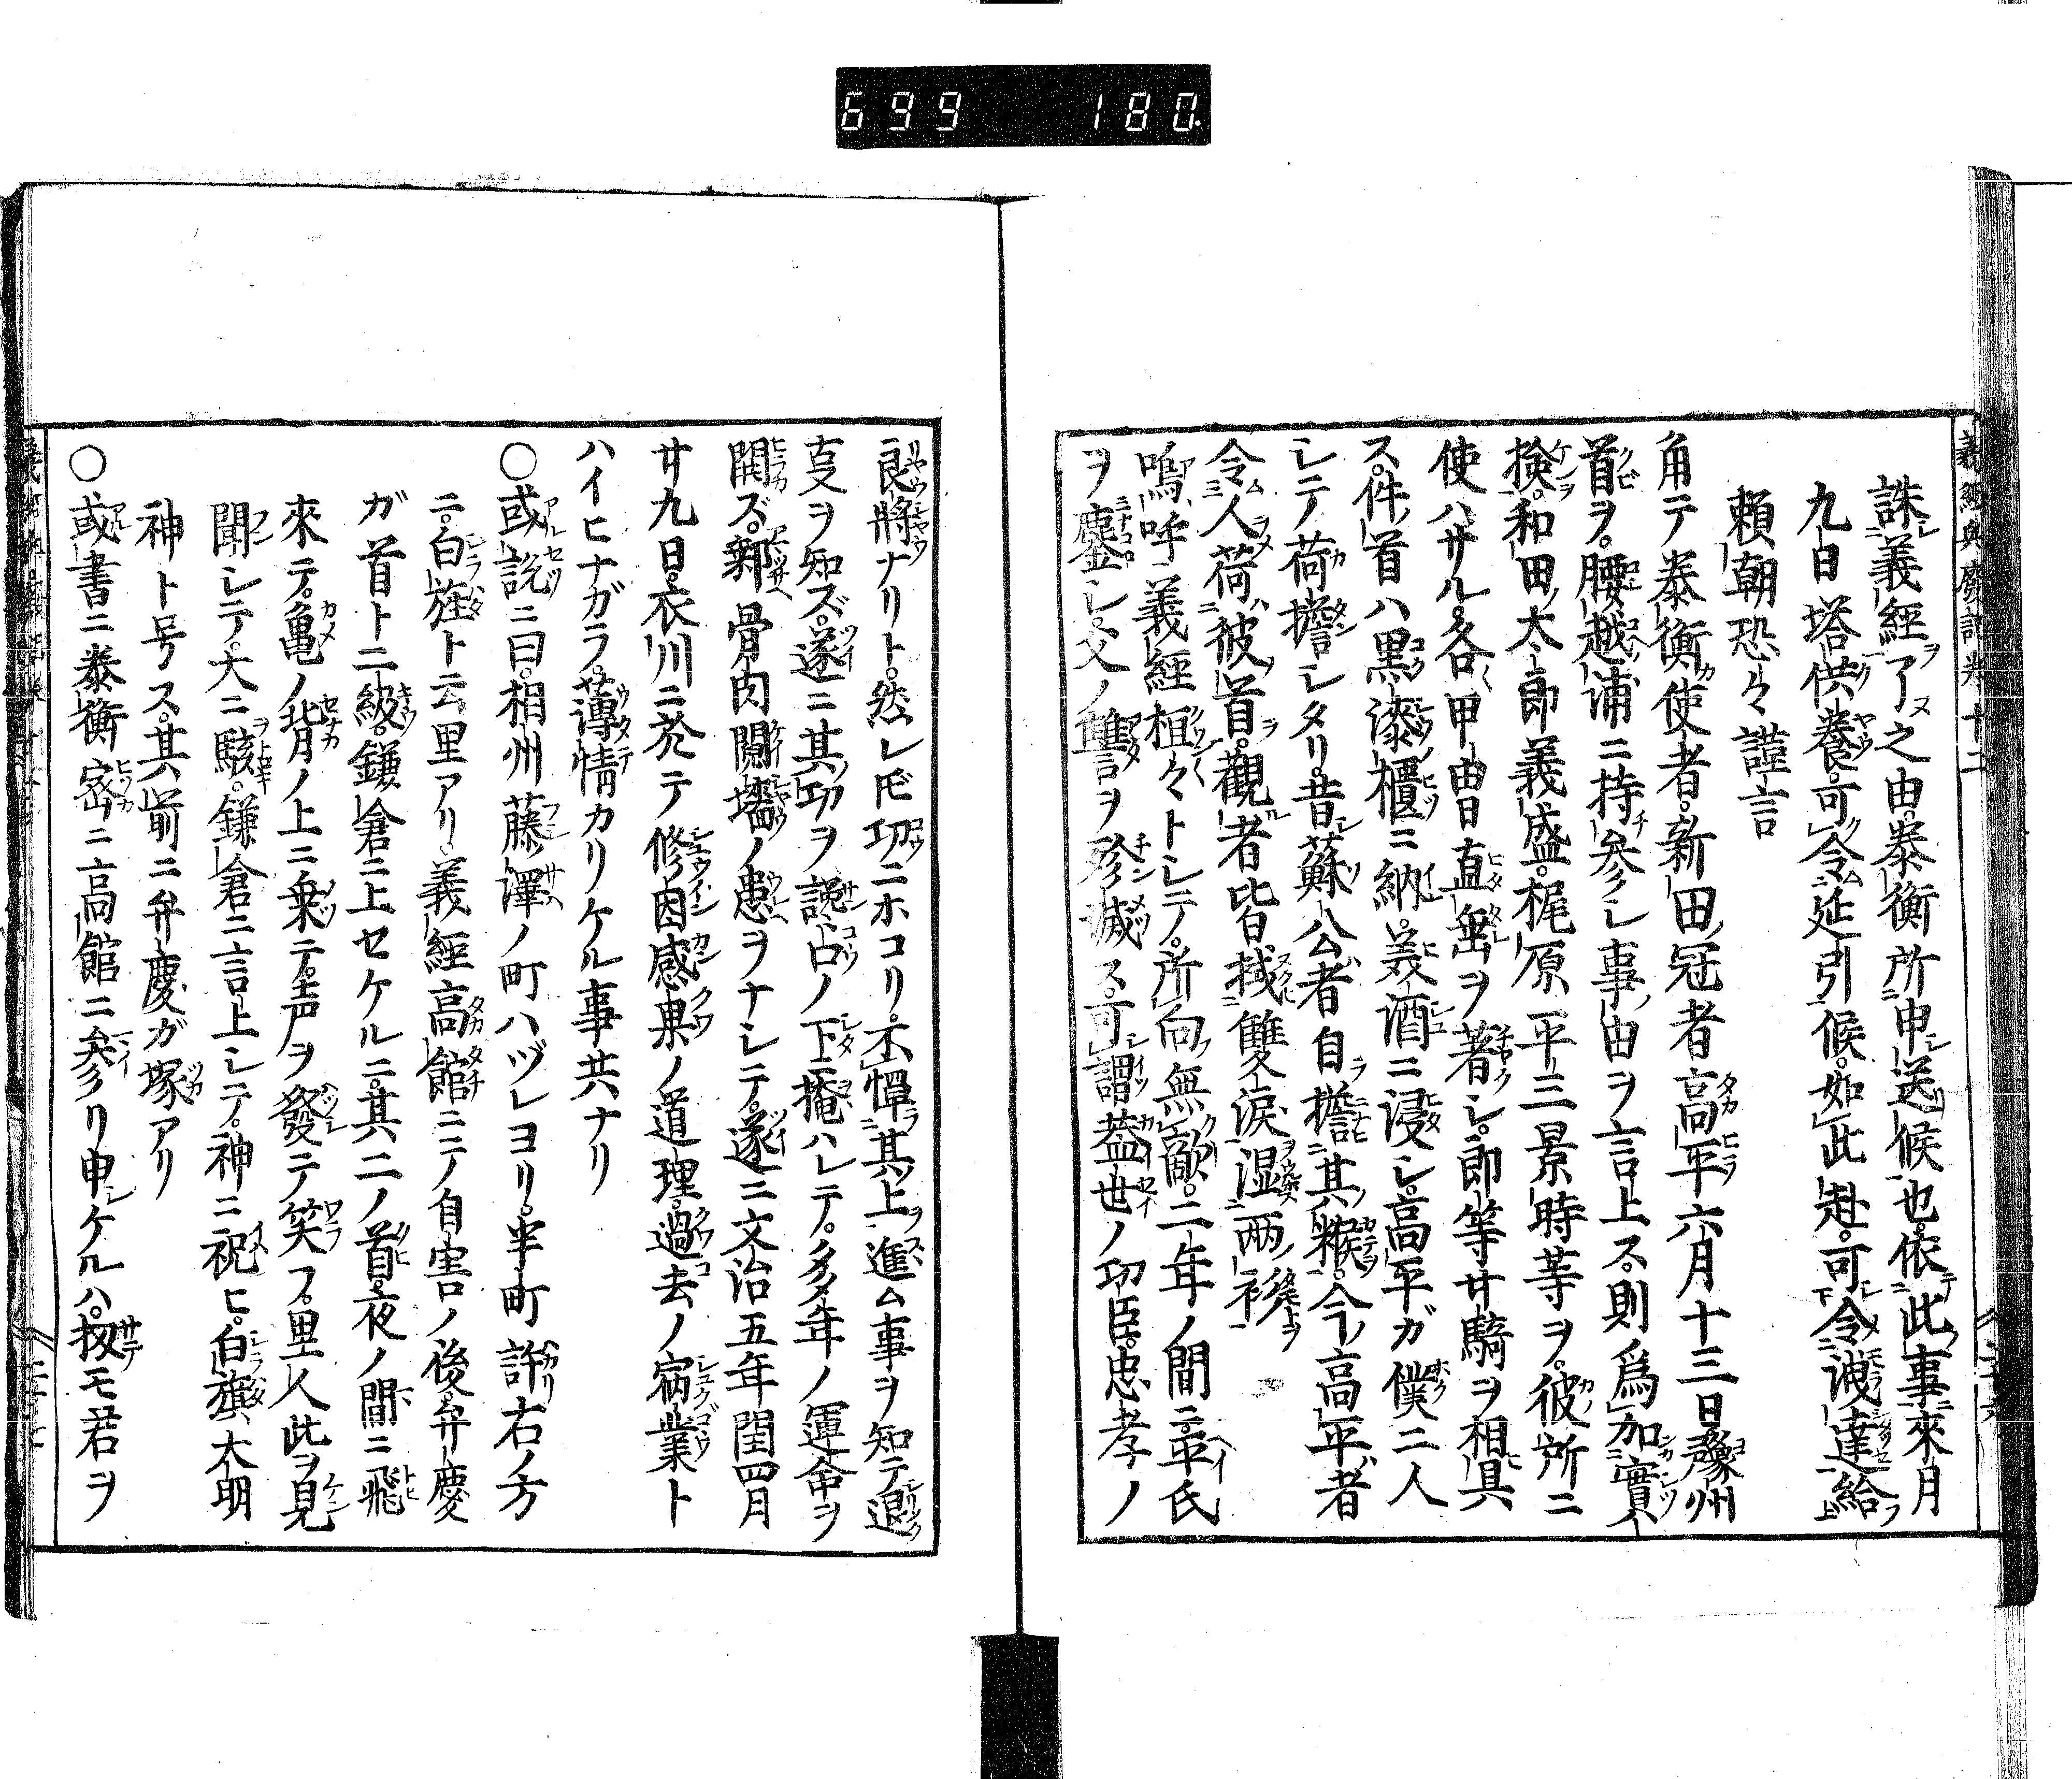 699 180
誅義經了之由泰衡所申送候也依此事來月
九日塔供養可令延引候如此趣可令洩達給
頼朝恐々謹言
角テ泰衡使者新田冠者高平六月十三日豫州
首ヲ腰越浦ニ持参シ事由ヲ言上ス則爲加實
撿和田太郎義盛梶原平三景時等ヲ彼所ニ
使ハサル各甲冑直垂ヲ著シ郎等廿騎ヲ相具
ス件首ハ黒漆櫃ニ納美酒ニ浸シ高平ガ僕二人
シテ荷擔シタリ昔蘇公者自擔其糇今高平者
令人荷彼首觀者皆拭雙涙湿両衫
嗚呼義經桓々トシテ所向無敵二年ノ間ニ平氏
ヲ鏖シ父ノ讐ヲ殄滅ス可謂蓋世ノ功臣忠孝ノ
良將ナリト然レ𪜈功ニホコリ不憚其上進ム事ヲ知テ退
事ヲ知ズ遂ニ其功ヲ讒口ノ下ニ掩ハレテ多年ノ運命ヲ
開ズ鄰骨肉鬩墻ノ患ヲナシテ遂ニ文治五年閏四月
廿九日衣川ニ於テ修因感果ノ道理過去ノ宿業ト
ハイヒナガラ薄情カリケル事共ナリ
○或説ニ曰相州藤澤ノ町ハヅレヨリ半町許右ノ方
ニ白旗ト云里アリ義經高館ニテ自害ノ後弁慶
ガ首ト二級鎌倉ニ上セケルニ其二ノ首夜ノ間ニ飛
來テ亀ノ背ノ上ニ乗テ声ヲ發テ笑フ里人此ヲ見
聞シテ大ニ駭鎌倉ニ言上シテ神ニ祝ヒ白旗大明
神ト号ス其前ニ弁慶ガ塚アリ
○或書ニ泰衡密ニ高館ニ参リ申ケルハ扨モ君ヲ